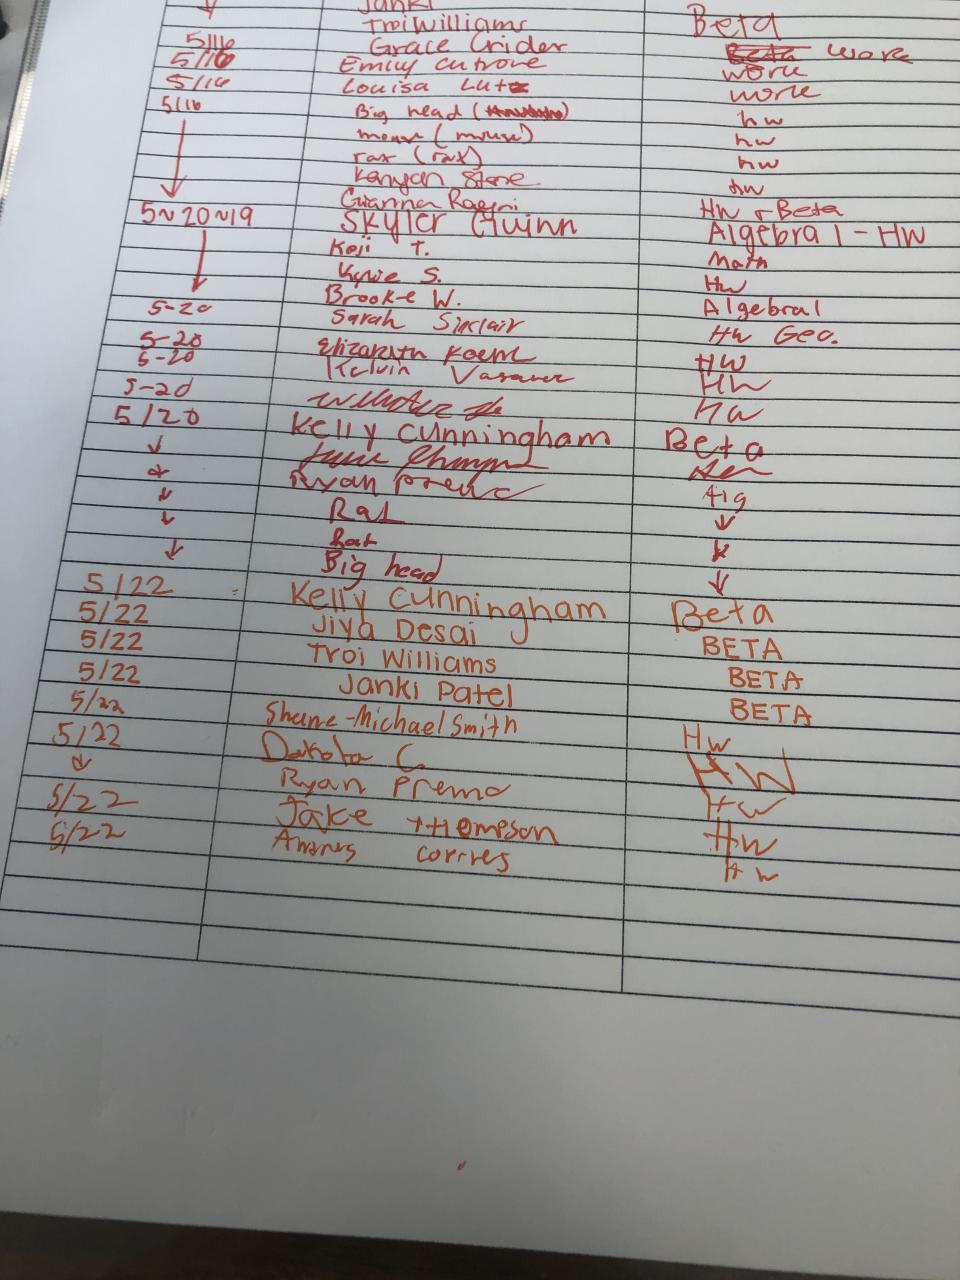 Janki
Troi Williams Beta
5/16 Grace Crider Beta work
5/16 Emily Cutrone work
5/16 Louisa Lutz work
5/16 Big head hw
(mouse) hw
rax (rax) hw
Kenyan Stone hw
Gianna Hw + Beta
5~20~19 Skyler Quinn Algebra 1 - HW
Koji T. Math
Kylie S. Hw
Brooke W. Algebra 1
5-20 Sarah Sinclair Hw Geo.
5-20 Elizabeth HW
5-20 Kelvin HW
5-20 HW
5/20 Kelly Cunningham Beta
↓
↓ Ryan Alg
↓ Rat ↓
↓ Rat ↓
↓ Big head ↓
5/22 Kelly Cunningham Beta
5/22 Jiya Desai BETA
5/22 Troi Williams BETA
5/22 Janki Patel BETA
5/22 Shane-Michael Smith HW
5/22 Dakota C. HW
↓ Ryan Premo HW
5/22 Jake Thompson HW
5/22 HW